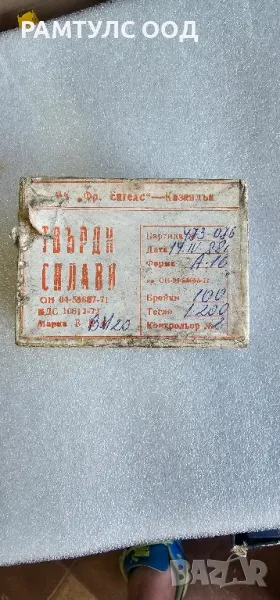 РАМТУЛС ООД
„Фр. Енгелс“ — Казанлък
ТВЪРДИ
СПЛАВИ
ОН 04-58687-71
БДС 10813-71
Марка ВМ20
Партида 473-086
Дата 19 IV 88г
Форма А-16
по ОН-04
Бройки 100
Тегло 1200
Контрольор № 2
BAZAR